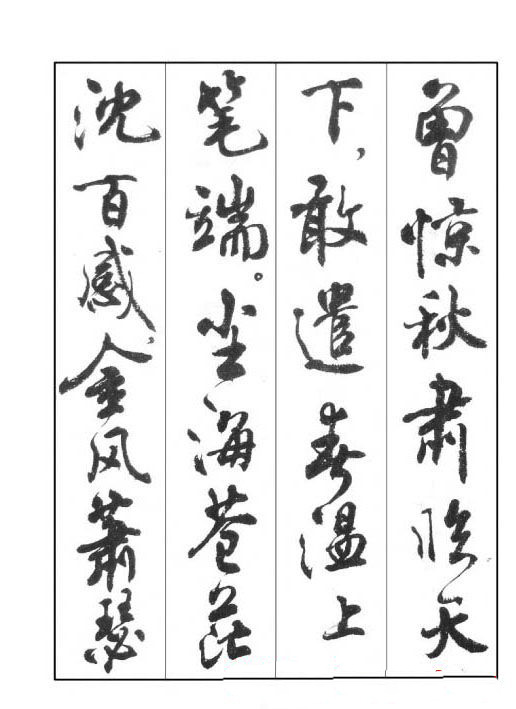 曾惊秋肃临天
下,敢遣春温上
笔端。尘海苍茫
沈百感,金风萧瑟